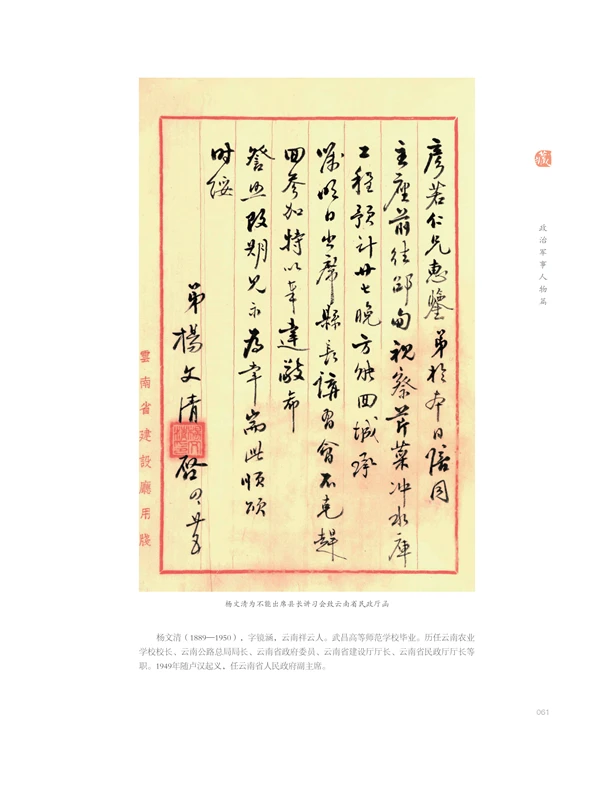 彥若仁兄惠鑒弟於本日陪同
主座前往邵甸視察芹菜冲水庫
工程預計廿七晚方能回城承
囑明日出席縣長講習會不克趕
回參加特以奉達敬希
詧照改期見示為幸耑此順頌
时綏
弟楊文清
啓四、廿五
雲南省建設廳用牋
政治军事人物篇
杨文清为不能出席县长讲习会致云南省民政厅函
杨文清（1889—1950），字镜涵，云南祥云人。武昌高等师范学校毕业。历任云南农业
学校校长、云南公路总局局长、云南省政府委员、云南省建设厅厅长、云南省民政厅厅长等
职。1949年随卢汉起义，任云南省人民政府副主席。
061